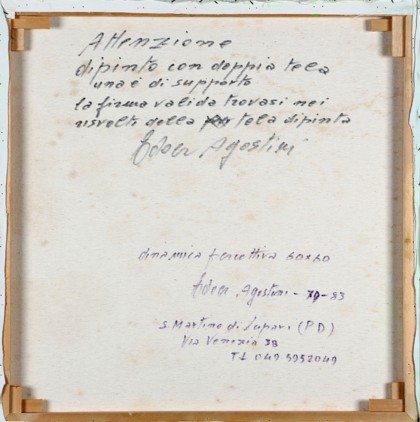 Attenzione
dipinto con doppia tela
una è di supporto
la firma valida trovasi nei
risvolti della tela dipinta
Edoer Agostini
dinamica percettiva 60x60
Edoer Agostini - 83
S. Martino di Lupari (PD)
Via Venezia 38
T1 049 5952049